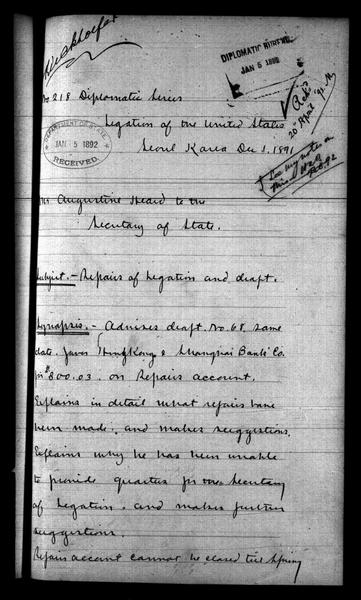 DIPLOMATIC BUREAU.
JAN 5 1892
No 218 Diplomatic Series
Legation of the United States
Seoul Korea Dec 1. 1891
DEPARTMENT OF STATE
JAN 5 1892
RECEIVED.
Augustine Heard to the
Secretary of State.
Subject. - Repairs of Legation and draft.
Synopsis. - Advises draft. No. 68. same
date. favor HongKong & Shanghai Bank Co.
for $800.03. on Repairs account.
Explains in detail what repairs have
been made; and makes suggestions.
Explains why he has been unable
to provide quarters for the Secretary
of Legation. and makes further
suggestions.
Repairs account cannot be closed till Spring